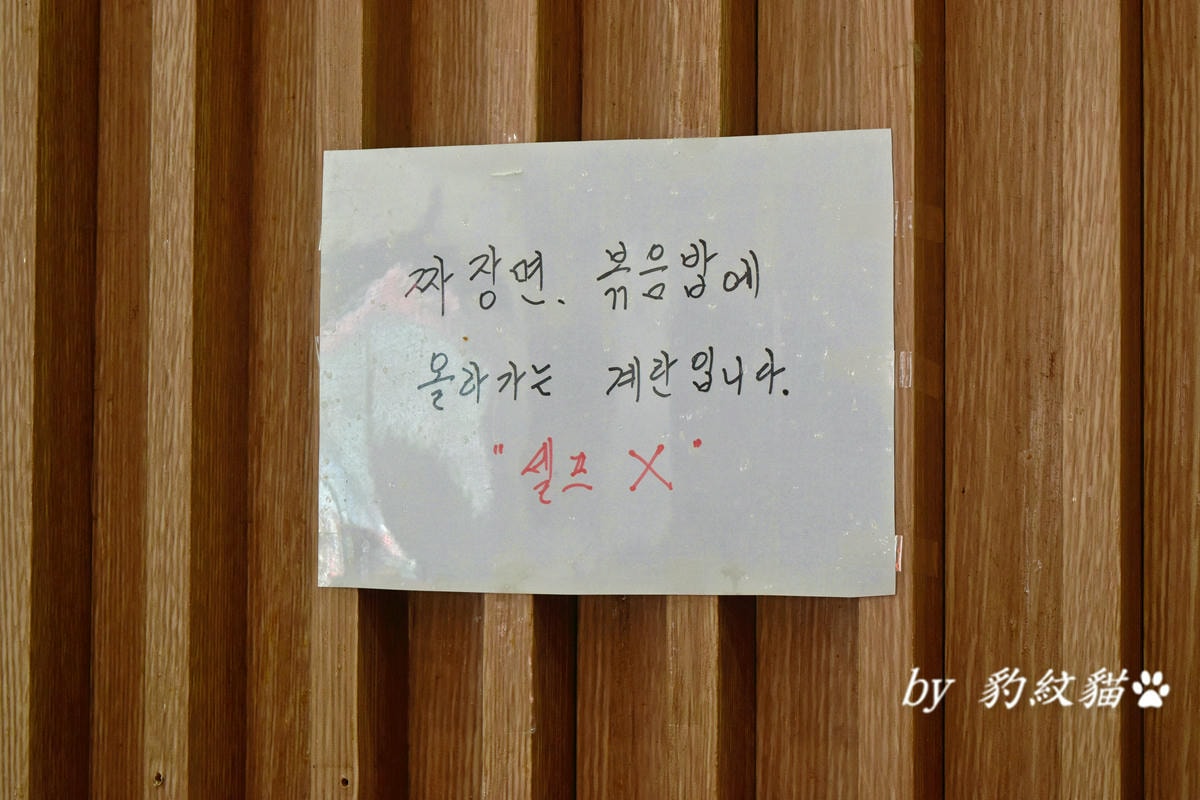 짜장면. 볶음밥에
올라가는 계란입니다.
"셀프 X"
by 豹紋貓